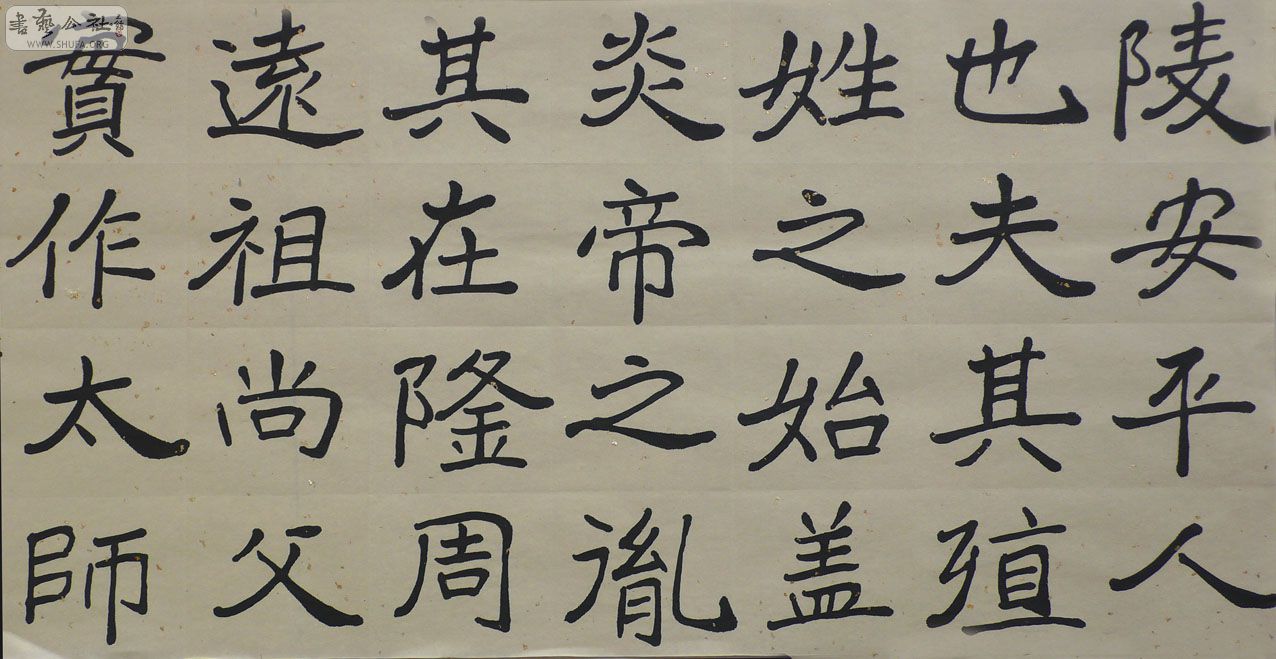 陵安平人
也夫其殖
姓之始盖
炎帝之胤
其在隆周
遠祖尚父
實作太師
書藝公社
WWW.SHUFA.ORG